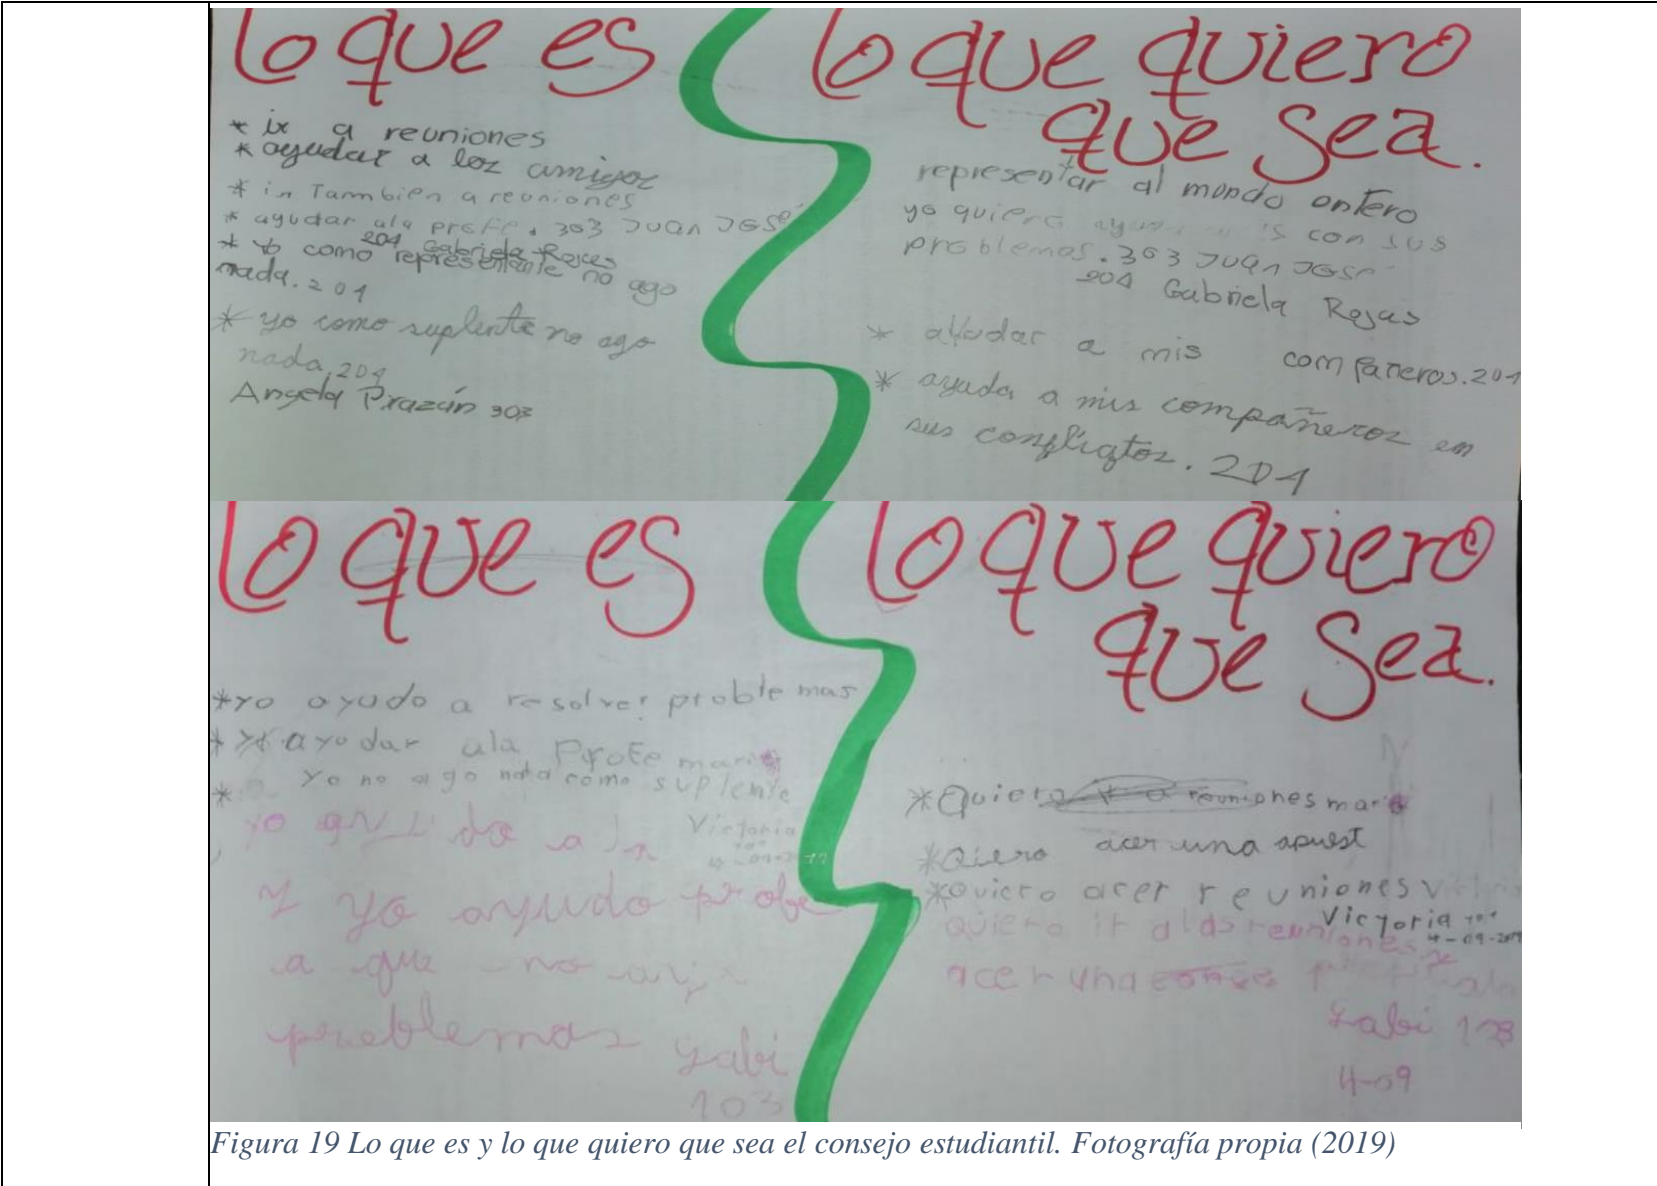 Lo que es
* ir a reuniones
* ayudar a loz amigoz
* ir Tambien a reuniones
* ayudar ala profe. 303 JUan JOSé
204 Gabriela Rojas
* yo como representante no ago
nada. 201
* yo como suplente no ago
nada. 204
Angela Prazán 303
Lo que quiero
que sea.
representar al mundo entero
yo quiero con sus
problemas. 303 JUan JOSé
204 Gabriela Rojas
* ayudar a mis compañeros. 201
* ayuda a mis compañeroz en
sus confligtoz. 204
Lo que es
*yo ayudo a resolver problemas
* ayudar ala Profe maria
* Yo no ago nada como suplente
Victoria
yo ayudo a la
Y yo ayudo
a que no
problemas gabi
103
Lo que quiero
que sea.
*Quiero reuniones maria
*Quiero acer una apuest
*Quiero acer reuniones
Victoria
quiero ir alas reuniones
acer una
gabi 103
4-09
Figura 19 Lo que es y lo que quiero que sea el consejo estudiantil. Fotografía propia (2019)